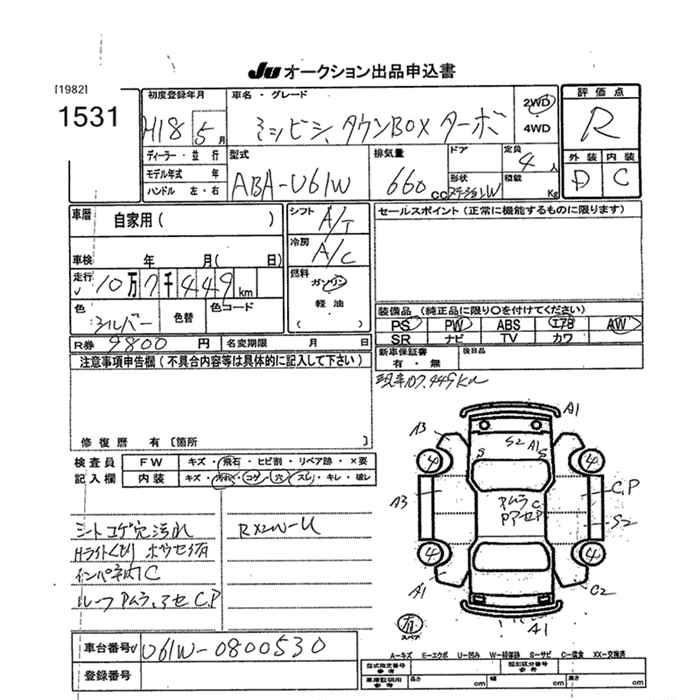 JU オークション出品申込書
[1982]
1531
初度登録年月
H18 5月
車名・グレード
ミツビシ、タウンBOX ターボ
2WD
・
4WD
評価点
R
外装 内装
D C
ディーラー・並行
モデル年式 年
ハンドル 左・右
型式
ABA-U61W
排気量
660 cc
ドア
形状
ステーションW
定員
4人
積載
Kg
車歴 自家用( )
車検 年 月( 日)
走行 10万7千449km
色 シルバー 色替 色コード
シフト A/T
冷房 A/C
燃料
ガソリン
軽油
( )
セールスポイント(正常に機能するものに限ります)
装備品(純正品に限り○を付けてください)
PS PW ABS エアB AW
SR ナビ TV カワ
R券 9800円 名変期限 月 日
新車保証書 後日品
有・無
注意事項申告欄(不具合内容等は具体的に記入して下さい)
現車107,449km
修復歴 有[箇所 ]
検査員
記入欄
FW キズ・飛石・ヒビ割・リペア跡・×要
内装 キズ・汚れ・コゲ・穴・スレ・キレ・破レ
シートコゲ穴汚れ
Hライトくもり
インパネ C
ルーフ
C.P
A3
A1
S2
A1
S
S
4
4
A3
C.P
S2
4
4
A1
C2
A1
有
スペア
車台番号 U61W-0800530
登録番号
A-キズ E-エクボ U-凹み W-補修跡 S-サビ C-腐食 XX-交換済
型式指定番号
参考
類別区分番号
参考
車庫証明用
参考
長さ cm 幅 cm 高さ cm